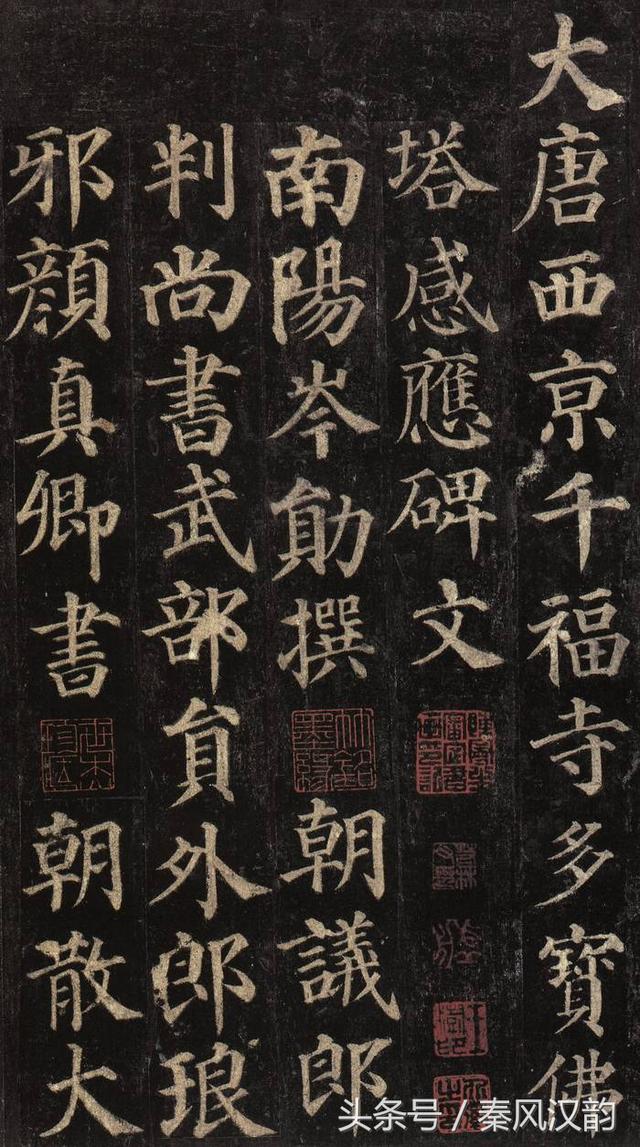 大唐西京千福寺多寶佛
塔感應碑文
南陽岑勛撰 朝議郎
判尚書武部員外郎琅
邪顏真卿書 朝散大
头条号 / 秦风汉韵